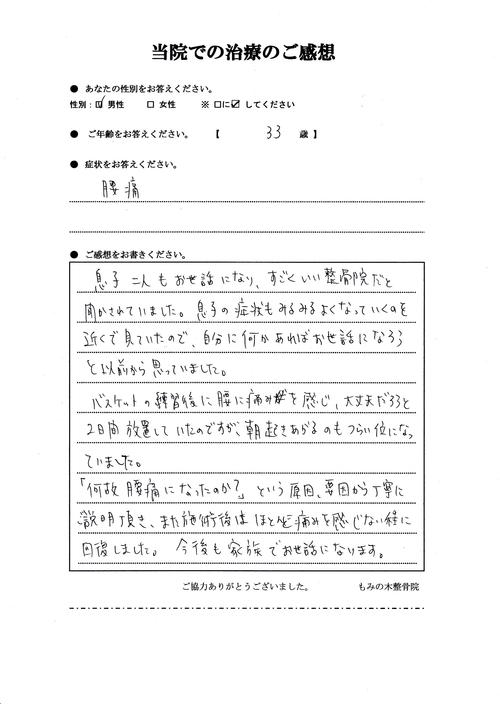 当院での治療のご感想
● あなたの性別をお答えください。
性別：☑ 男性　□ 女性　※ □に☑ してください
● ご年齢をお答えください。　【　33　歳 】
● 症状をお答えください。
腰痛
● ご感想をお書きください。
息子二人もお世話になり、すごくいい整骨院だと
聞かされていました。息子の症状もみるみるよくなっていくのを
近くで見ていたので、自分に何かあればお世話になろう
と以前から思っていました。
バスケットの練習後に腰に痛みを感じ、大丈夫だろうと
2日間放置していたのですが、朝起きあがるのもつらい位になっ
ていました。
「何故腰痛になったのか？」という原因、要因から丁寧に
説明頂き、また施術後はほとんど痛みを感じない程に
回復しました。今後も家族でお世話になります。
ご協力ありがとうございました。　もみの木整骨院